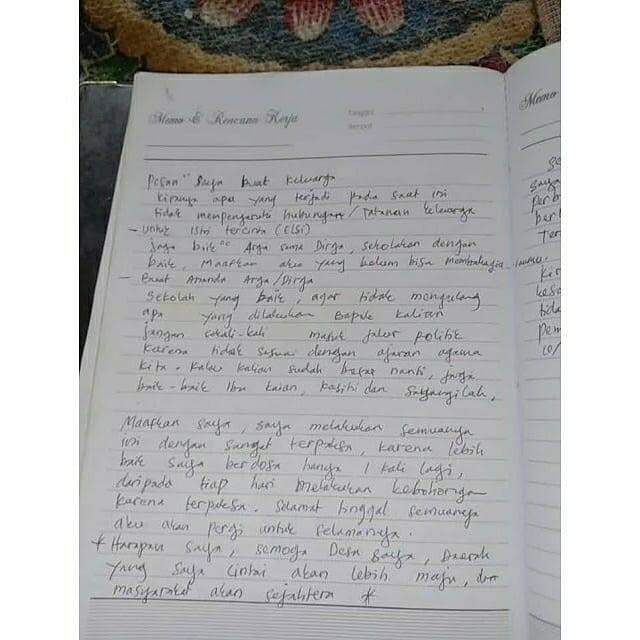 Memo & Rencana Kerja
Tanggal
Tempat
Pesan" Saya buat keluarga
kiranya apa yang terjadi pada saat ini
tidak mempengaruhi hubungan / tatanan keluarga
- untuk istri tercinta (ELSI)
jaga baik" Arga sama Dirga, sekolahkan dengan
baik, Maafkan aku yang belum bisa membahagiakanmu.
- Buat Ananda Arga/Dirga
Sekolah yang baik, agar tidak mengulang
apa yang dilakukan Bapak kalian
jangan sekali-kali masuk jalur politik
karena tidak sesuai dengan ajaran agama
kita. kalau kalian sudah besar nanti, jaga
baik-baik Ibu kalian, kasihi dan Sayangilah,
Maafkan saya, saya melakukan semuanya
ini dengan sangat terpaksa, karena lebih
baik saya berdosa hanya 1 kali lagi,
daripada tiap hari melakukan kebohongan
karena terpaksa. Selamat tinggal semuanya
aku akan pergi untuk selamanya.
* Harapan saya, semoga Desa saya, Daerah
yang saya cintai akan lebih maju, dan
masyarakat akan sejahtera *
Memo